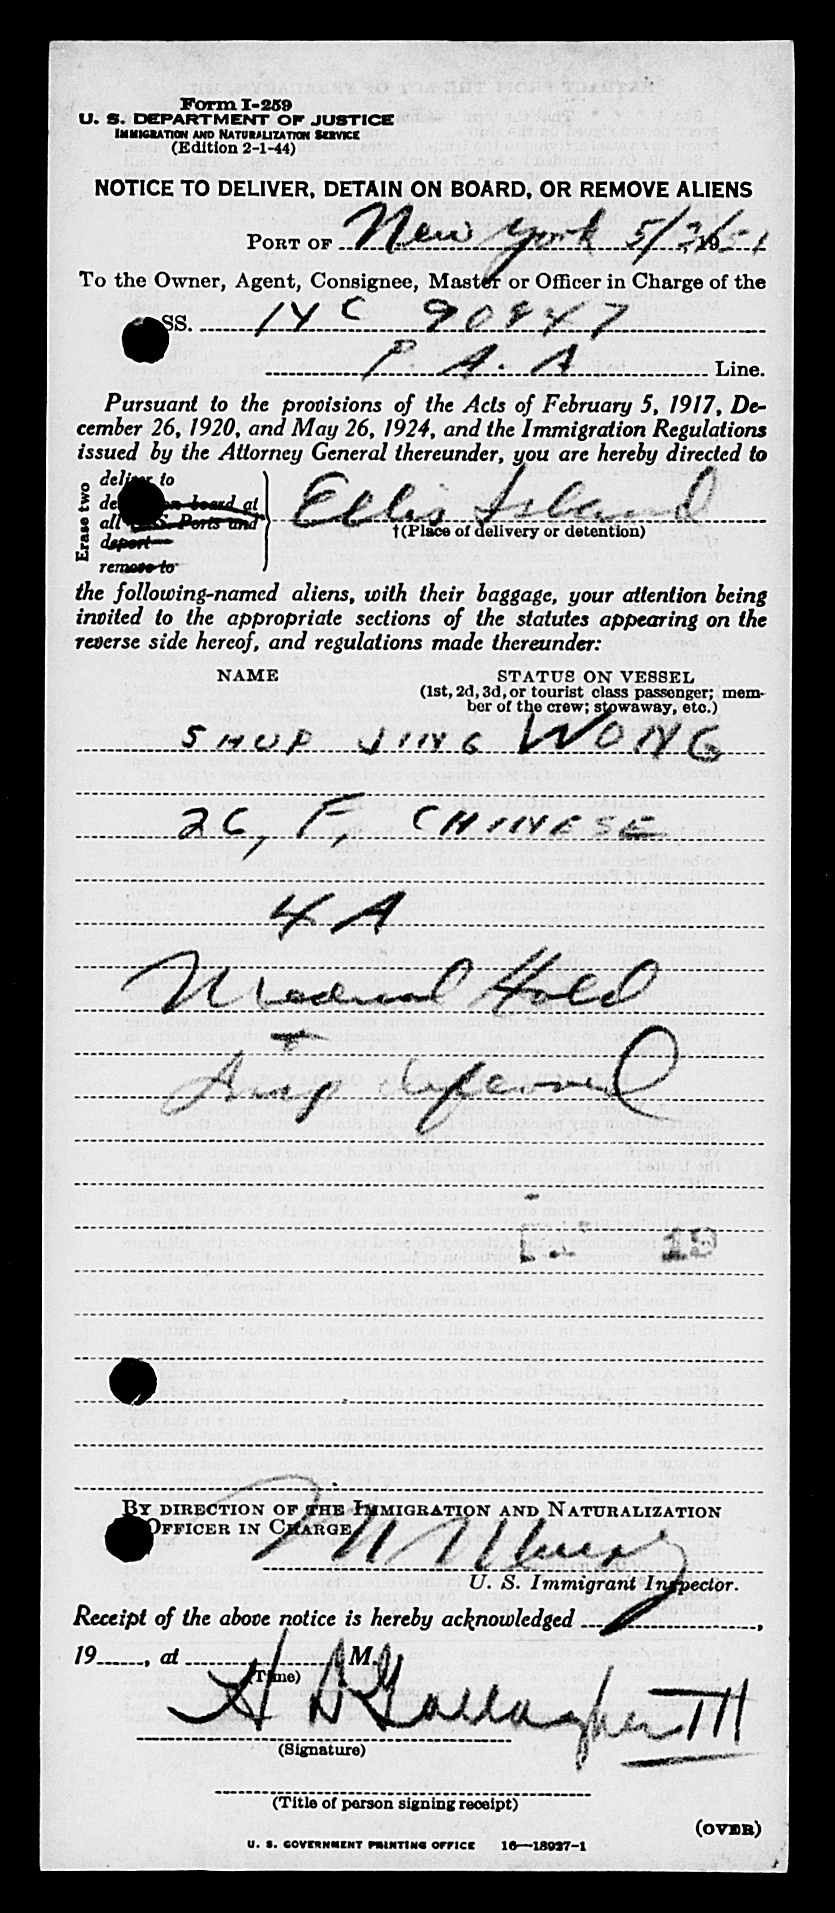 Form I-259
U. S. DEPARTMENT OF JUSTICE
IMMIGRATION AND NATURALIZATION SERVICE
(Edition 2-1-44)
NOTICE TO DELIVER, DETAIN ON BOARD, OR REMOVE ALIENS
PORT OF New York 5/3/1951
To the Owner, Agent, Consignee, Master or Officer in Charge of the
SS. 14C 90947
P. A. A Line.
Pursuant to the provisions of the Acts of February 5, 1917, De-
cember 26, 1920, and May 26, 1924, and the Immigration Regulations
issued by the Attorney General thereunder, you are hereby directed to
Erase two
deliver to
on board at
all U.S. Ports and
deport
remove to
Ellis Island
†(Place of delivery or detention)
the following-named aliens, with their baggage, your attention being
invited to the appropriate sections of the statutes appearing on the
reverse side hereof, and regulations made thereunder:
NAME STATUS ON VESSEL
(1st, 2d, 3d, or tourist class passenger; mem-
ber of the crew; stowaway, etc.)
SHUP JING WONG
26, F, CHINESE
4A
Medical Hold
+
19
BY DIRECTION OF THE IMMIGRATION AND NATURALIZATION
OFFICER IN CHARGE
U. S. Immigrant Inspector.
Receipt of the above notice is hereby acknowledged ,
19 , at M.
(Time)
H Gallagher III
(Signature)
(Title of person signing receipt)
(OVER)
U. S. GOVERNMENT PRINTING OFFICE 16—18937-1